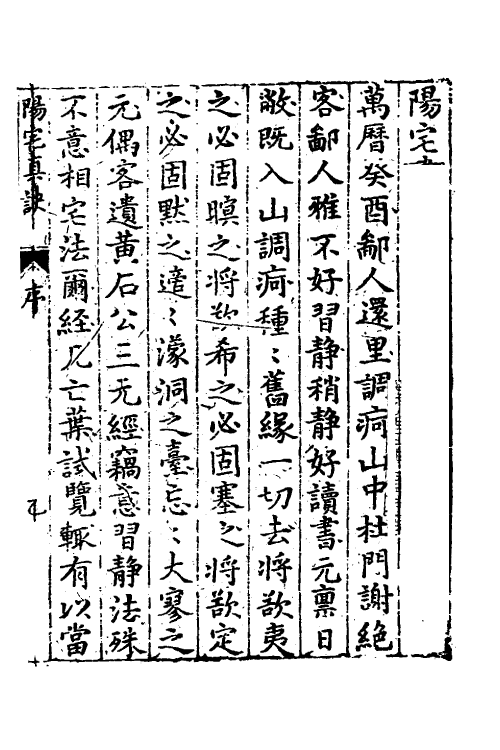 陽宅
萬曆癸酉鄙人還里調痾山中杜門謝絕
客鄙人雅不好習静稍静好讀書元稟日
敝既入山調痾種〻舊緣一切去將欲夷
之必固瞑之將欲希之必固塞之將欲定
之必固默之遣〻濛洞之臺忘〻大寥之
元偶客遺黄石公三元經竊惑習静法殊
不意相宅法爾經凡亡葉試覽輙有以當
陽宅真訣
序